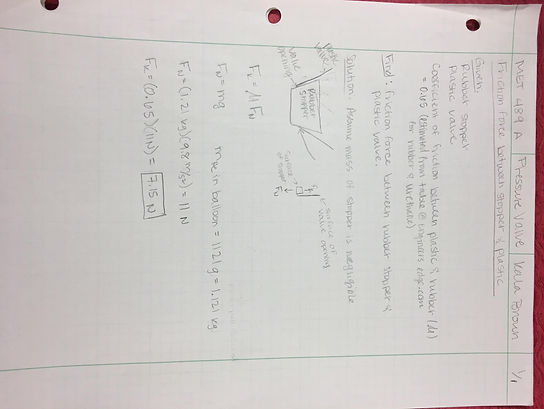 MET 489 A Pressure Valve Kalla Brown 1/1
Friction force between stopper & plastic
Given:
Rubber stopper
Plastic valve
Coefficient of friction between plastic & rubber (μ)
= 0.65 (estimated from table @ engineers edge.com
for rubber & urethane)
Find: friction force between rubber stopper &
plastic valve.
Solution: Assume mass of stopper is negligible
plastic valve
Rubber
stopper
valve
opening
surface of
valve opening
surface
of stopper
FN
Fk = μFN
FN = mg
in balloon = 1121g = 1.121 kg
FN = (1.121 kg)(9.8 m/s²) = 11 N
Fk = (0.65)(11N) = 7.15 N